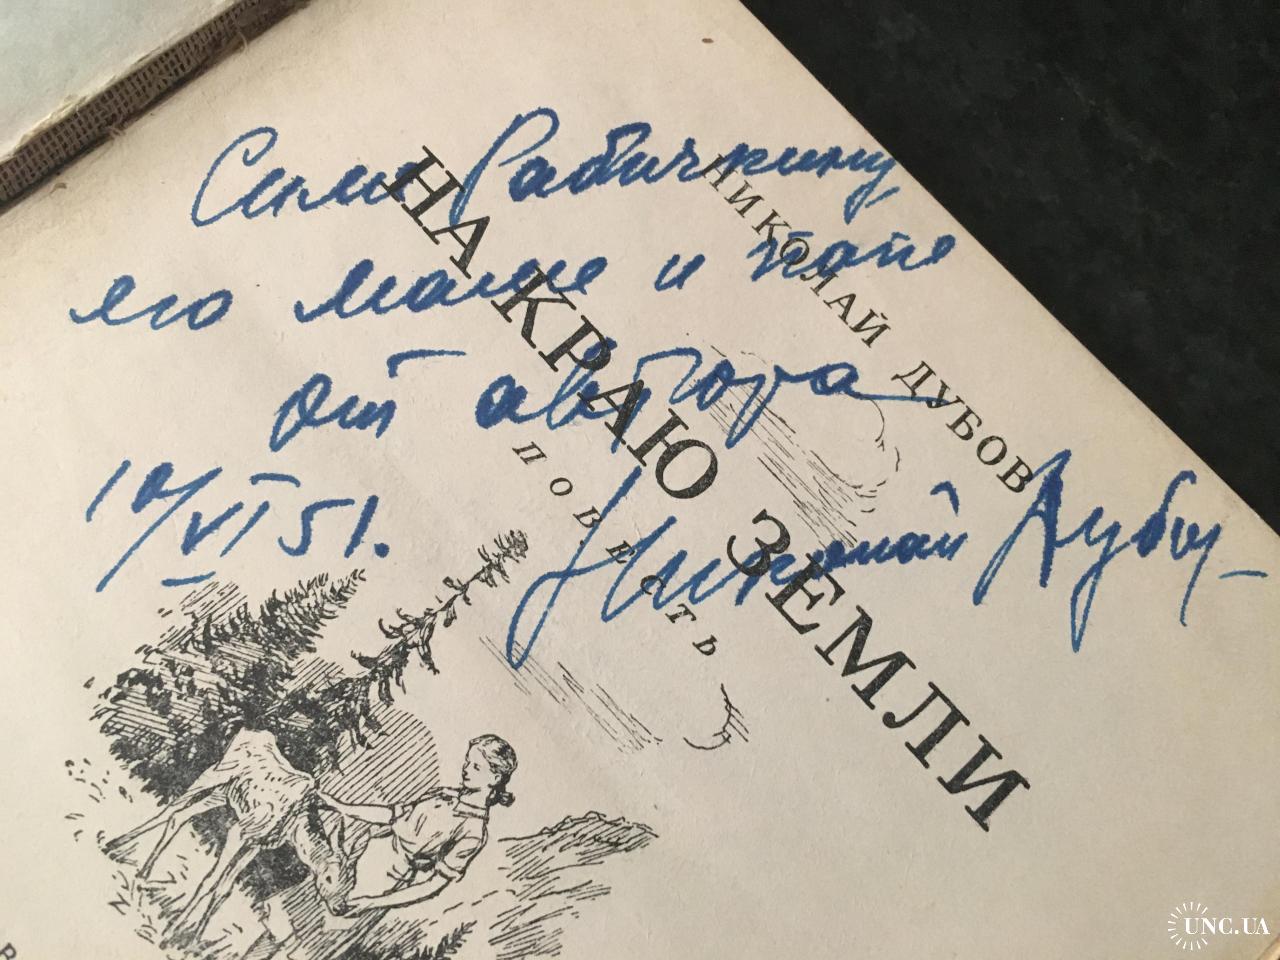 Симе Рабичкину
его маме и папе
от автора
10/VI 51.
Николай Дубов
НИКОЛАЙ ДУБОВ
НА КРАЮ ЗЕМЛИ
ПОВЕСТЬ
UNC.UA